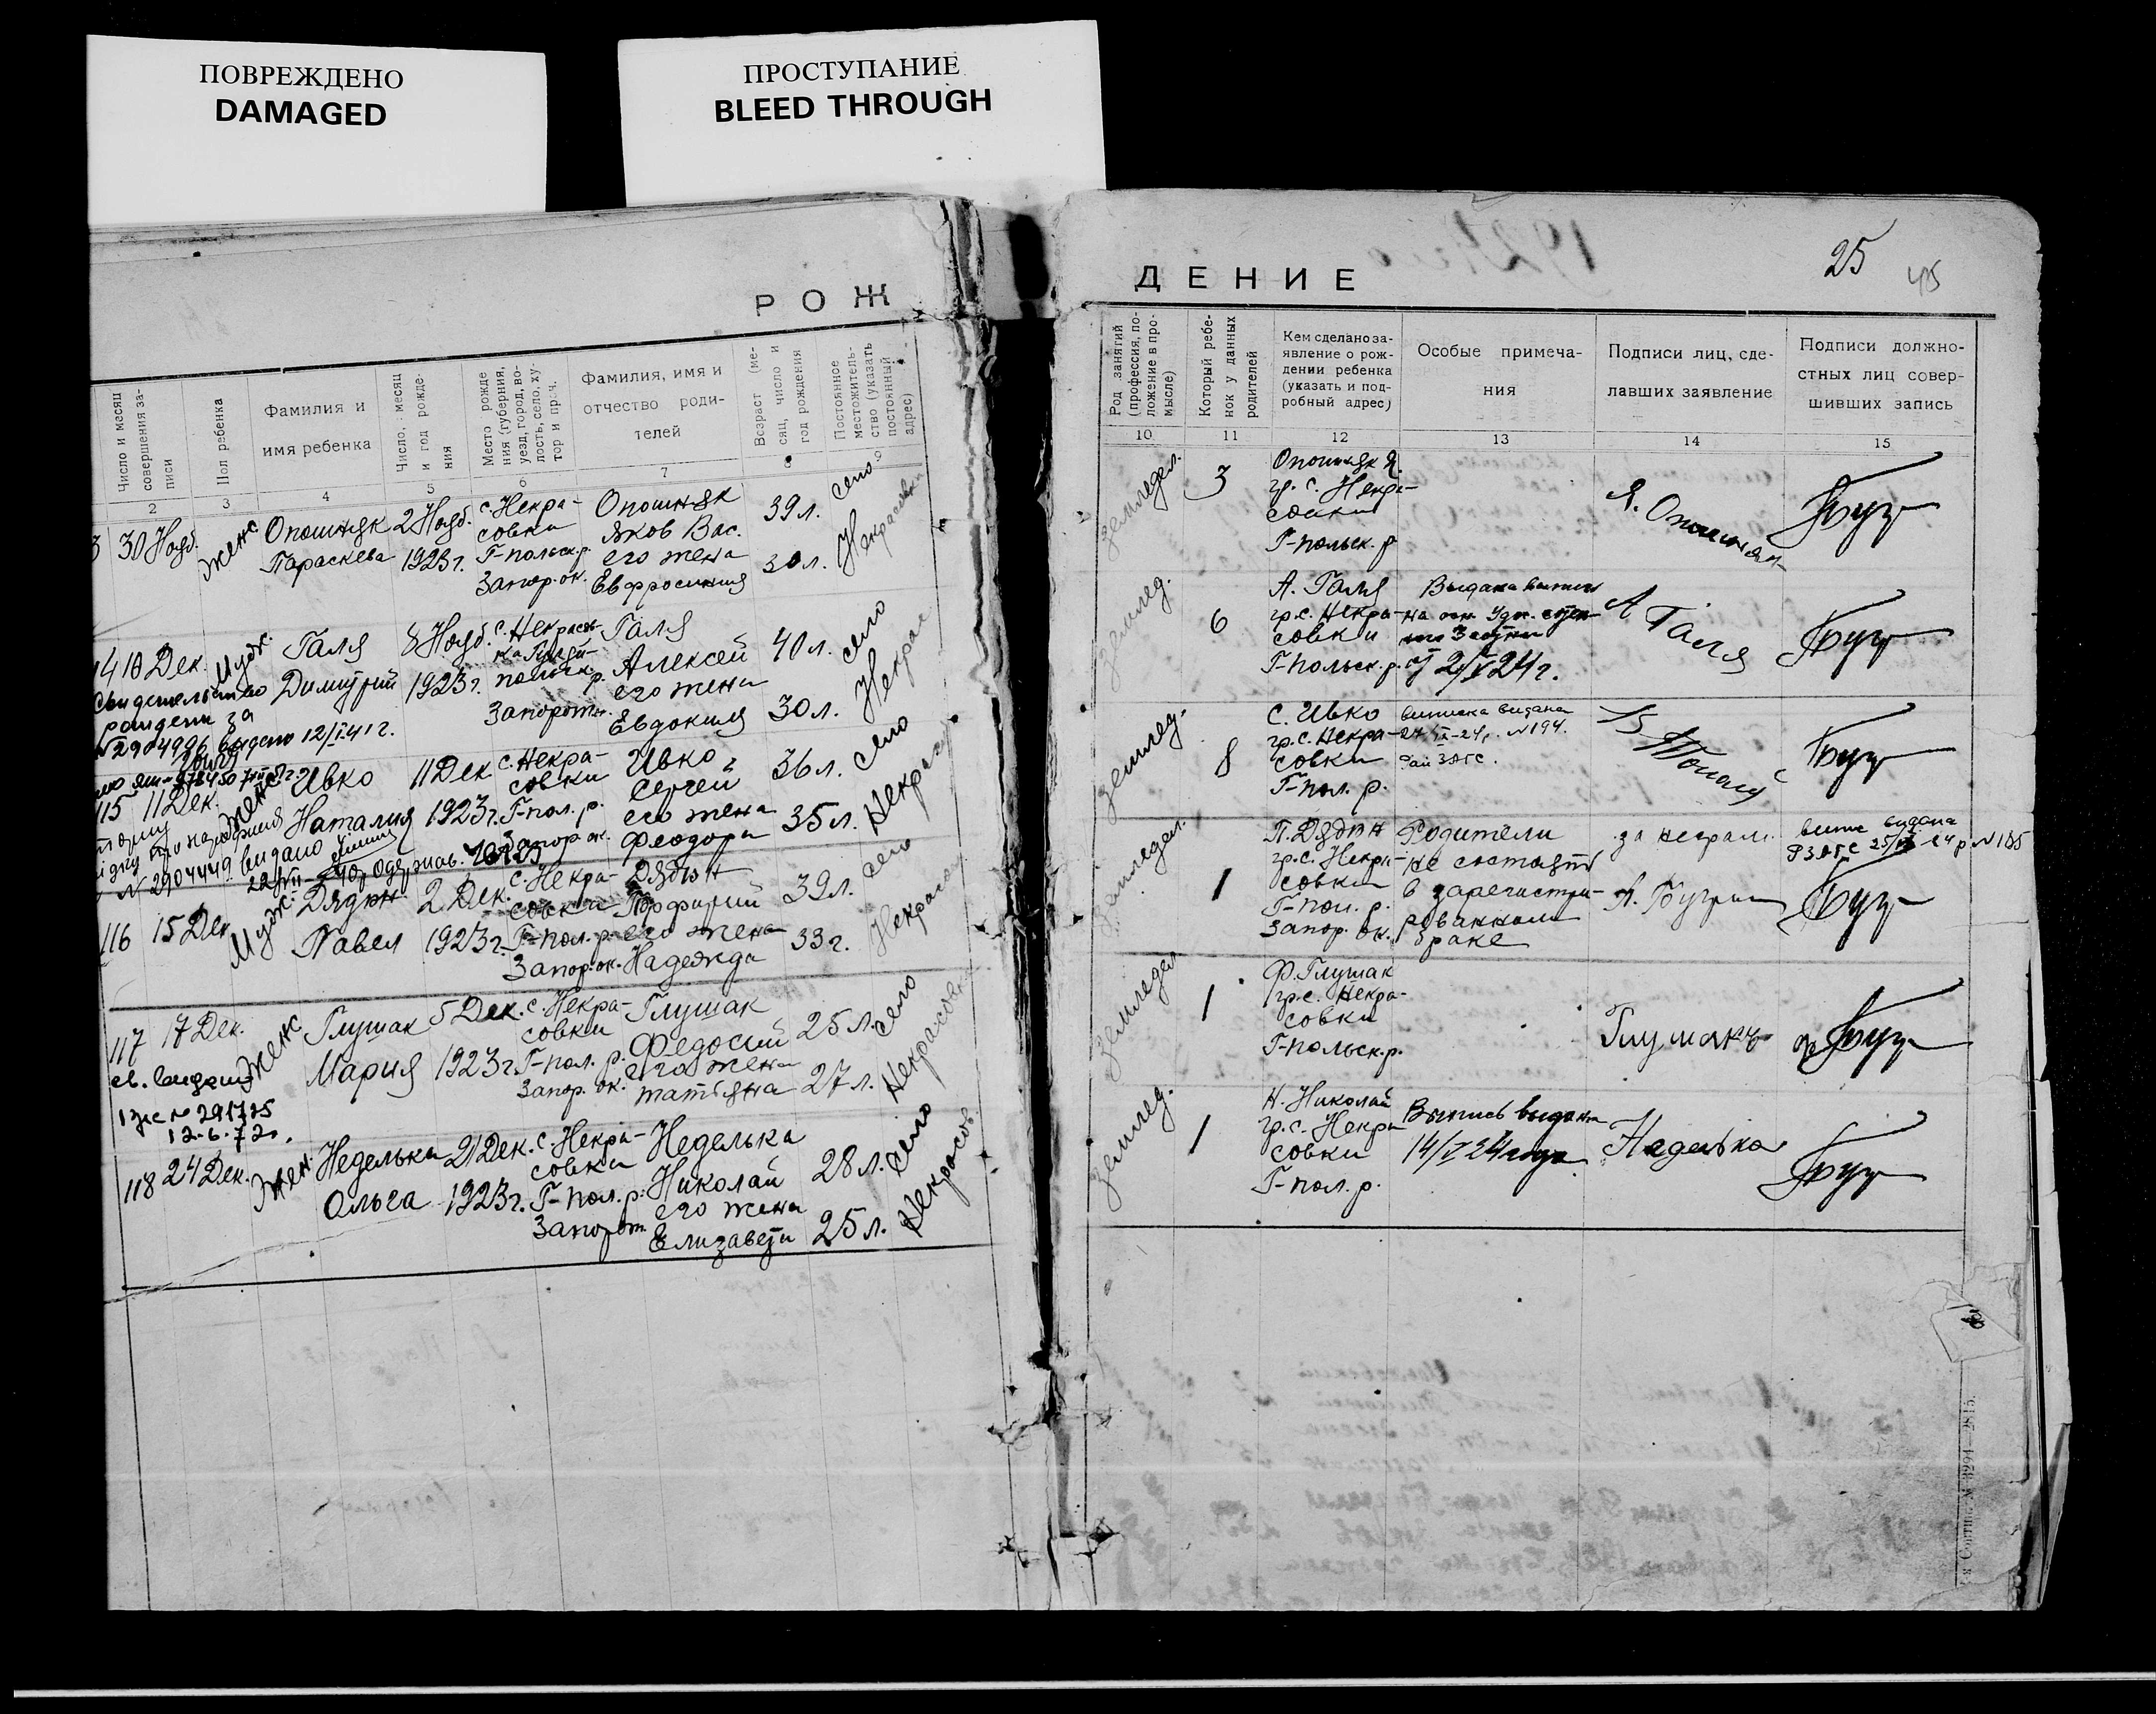 ПОВРЕЖДЕНО
DAMAGED
ПРОСТУПАНИЕ
BLEED THROUGH
РОЖ
Число и месяц
совершения за-
писи
Пол ребенка
Фамилия и
имя ребенка
Число, месяц
и год рожде-
ния
Место рожде
ния (губерния,
уезд, город, во-
лость, село, ху-
тор и проч.
Фамилия, имя и
отчество роди-
телей
Возраст (ме-
сяц, число и
год рождения
Постоянное
местожитель-
ство (указать
постоянный
адрес)
2 3 4 5 6 7 8 9
3 30 Нояб.
женс
Опошняк
Параскева
2 Нояб.
1923 г.
с. Некра-
совки
Г-польск. р.
Запор. ок.
Опошняк
Яков Вас.
его жена
Евфросиния
39 л.
30 л.
село
Некрасовки
14 10 Дек.
Мужс.
Галя
Димутрий
8 Нояб.
1923 г.
с. Некрасов-
польск. р.
Запорож.
Галя
Алексей
его жена
Евдокия
40 л.
30 л.
село
Некрас
Свидетельство
рожден за
№ 2904996 выдано 12/I.41 г.
115 11 Дек.
женс
Ивко
Наталия
11 Дек
1923 г.
с. Некра-
совки
Г-пол. р.
Запор ок.
Ивко
Сергей
его жена
Феодора
36 л.
35 л.
село
Некрасо
№ 2904449 видано
116 15 Дек
Мужс.
Дядюн
Павел
2 Дек.
1923 г.
с. Некра-
совки
Г-пол. р.
Запор. ок.
Дядюн
Порфирий
его жена
Надежда
39 л.
33 г.
село
Некрасо
117 17 Дек.
женс
Глушак
Мария
5 Дек.
1923 г.
с. Некра-
совки
Г-пол. р.
Запор. ок.
Глушак
Федосий
его жена
Татьяна
25 л.
27 л.
село
Некрасовки
св. видано
№ 291725
12.6.72 г.
118 24 Дек.
жен.
Неделька
Ольга
21 Дек.
1923 г.
с. Некра-
совки
Г-пол. р.
Запорож
Неделька
Николай
его жена
Елизавета
28 л.
25 л.
село
Некрасов
ДЕНИЕ
25
45
Род занятий
(профессия, по-
ложение в про-
мысле)
Который ребе-
нок у данных
родителей
Кем сделано за-
явление о рож-
дении ребенка
(указать и под-
робный адрес)
Особые примеча-
ния
Подписи лиц, сде-
лавших заявление
Подписи должно-
стных лиц совер-
шивших запись
10 11 12 13 14 15
земледел.
3
Опошняк Я.
гр. с. Некра-
совки
Г-польск. р
Я. Опошнян
землед.
6
А. Галя
гр. с. Некра-
совки
Г-польск. р.
Выдана выпись
24 г.
А Галя
землед.
8
С. Ивко
гр. с. Некра-
совки
Г-пол. р.
выписка видана
№ 194.
Рай ЗАГС.
земледел.
1
П. Дядюн
гр. с. Некра-
совки
Г-пол. р.
Запор. ок.
Родители
не состоят
в зарегистри-
рованном
браке
за неграм.
видана
РЗАГС 25/ 24 р № 185
земледел
1
Ф. Глушак
гр. с. Некра-
совки
Г-польск. р.
Глушакъ
землед.
1
Н. Николай
гр. с. Некра
совки
Г-пол. р.
Выпись видана
14/V 24 года
Неделька